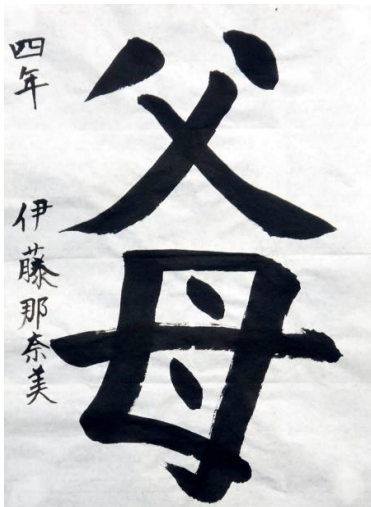 父母
四年 伊藤那奈美